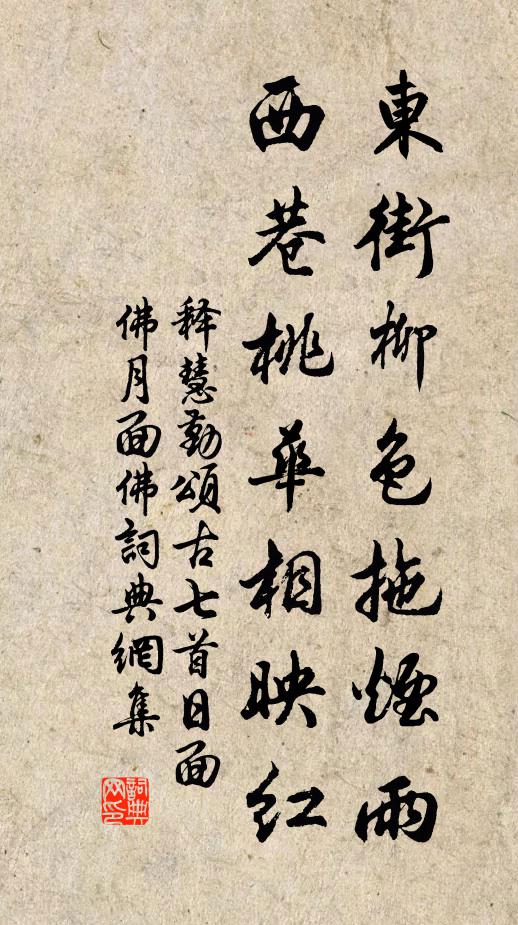 東街柳色拖煙雨
西巷桃華相映紅
释慧勤頌古七首日面
佛月面佛詞典網集
詞典网印